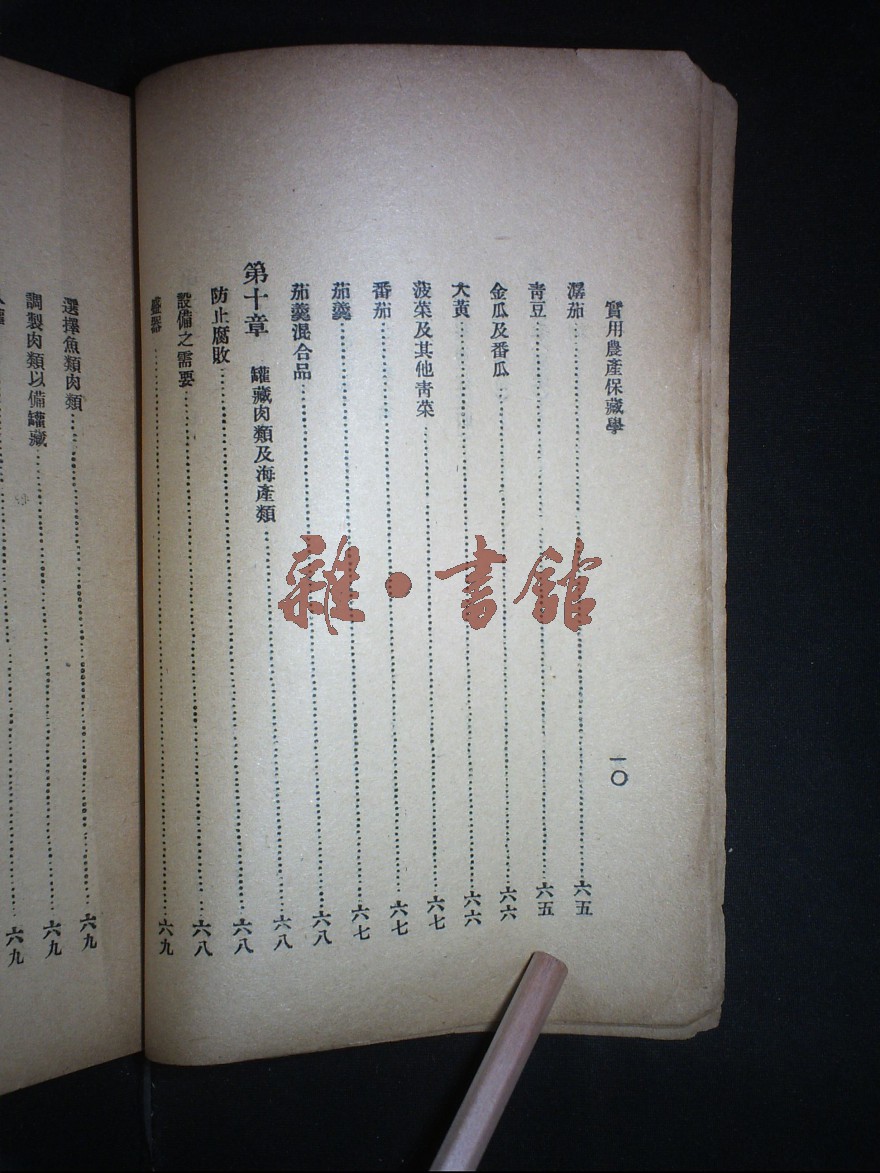 實用農產保藏學
一〇
潺茄 六五
靑豆 六五
金瓜及番瓜 六六
大黃 六六
菠菜及其他靑菜 六七
番茄 六七
茄羹 六七
茄羹混合品 六八
第十章 罐藏肉類及海產類 六八
防止腐敗 六八
設備之需要 六八
盛器 六九
選擇魚類肉類 六九
調製肉類以備罐藏 六九
六九
雜·書館